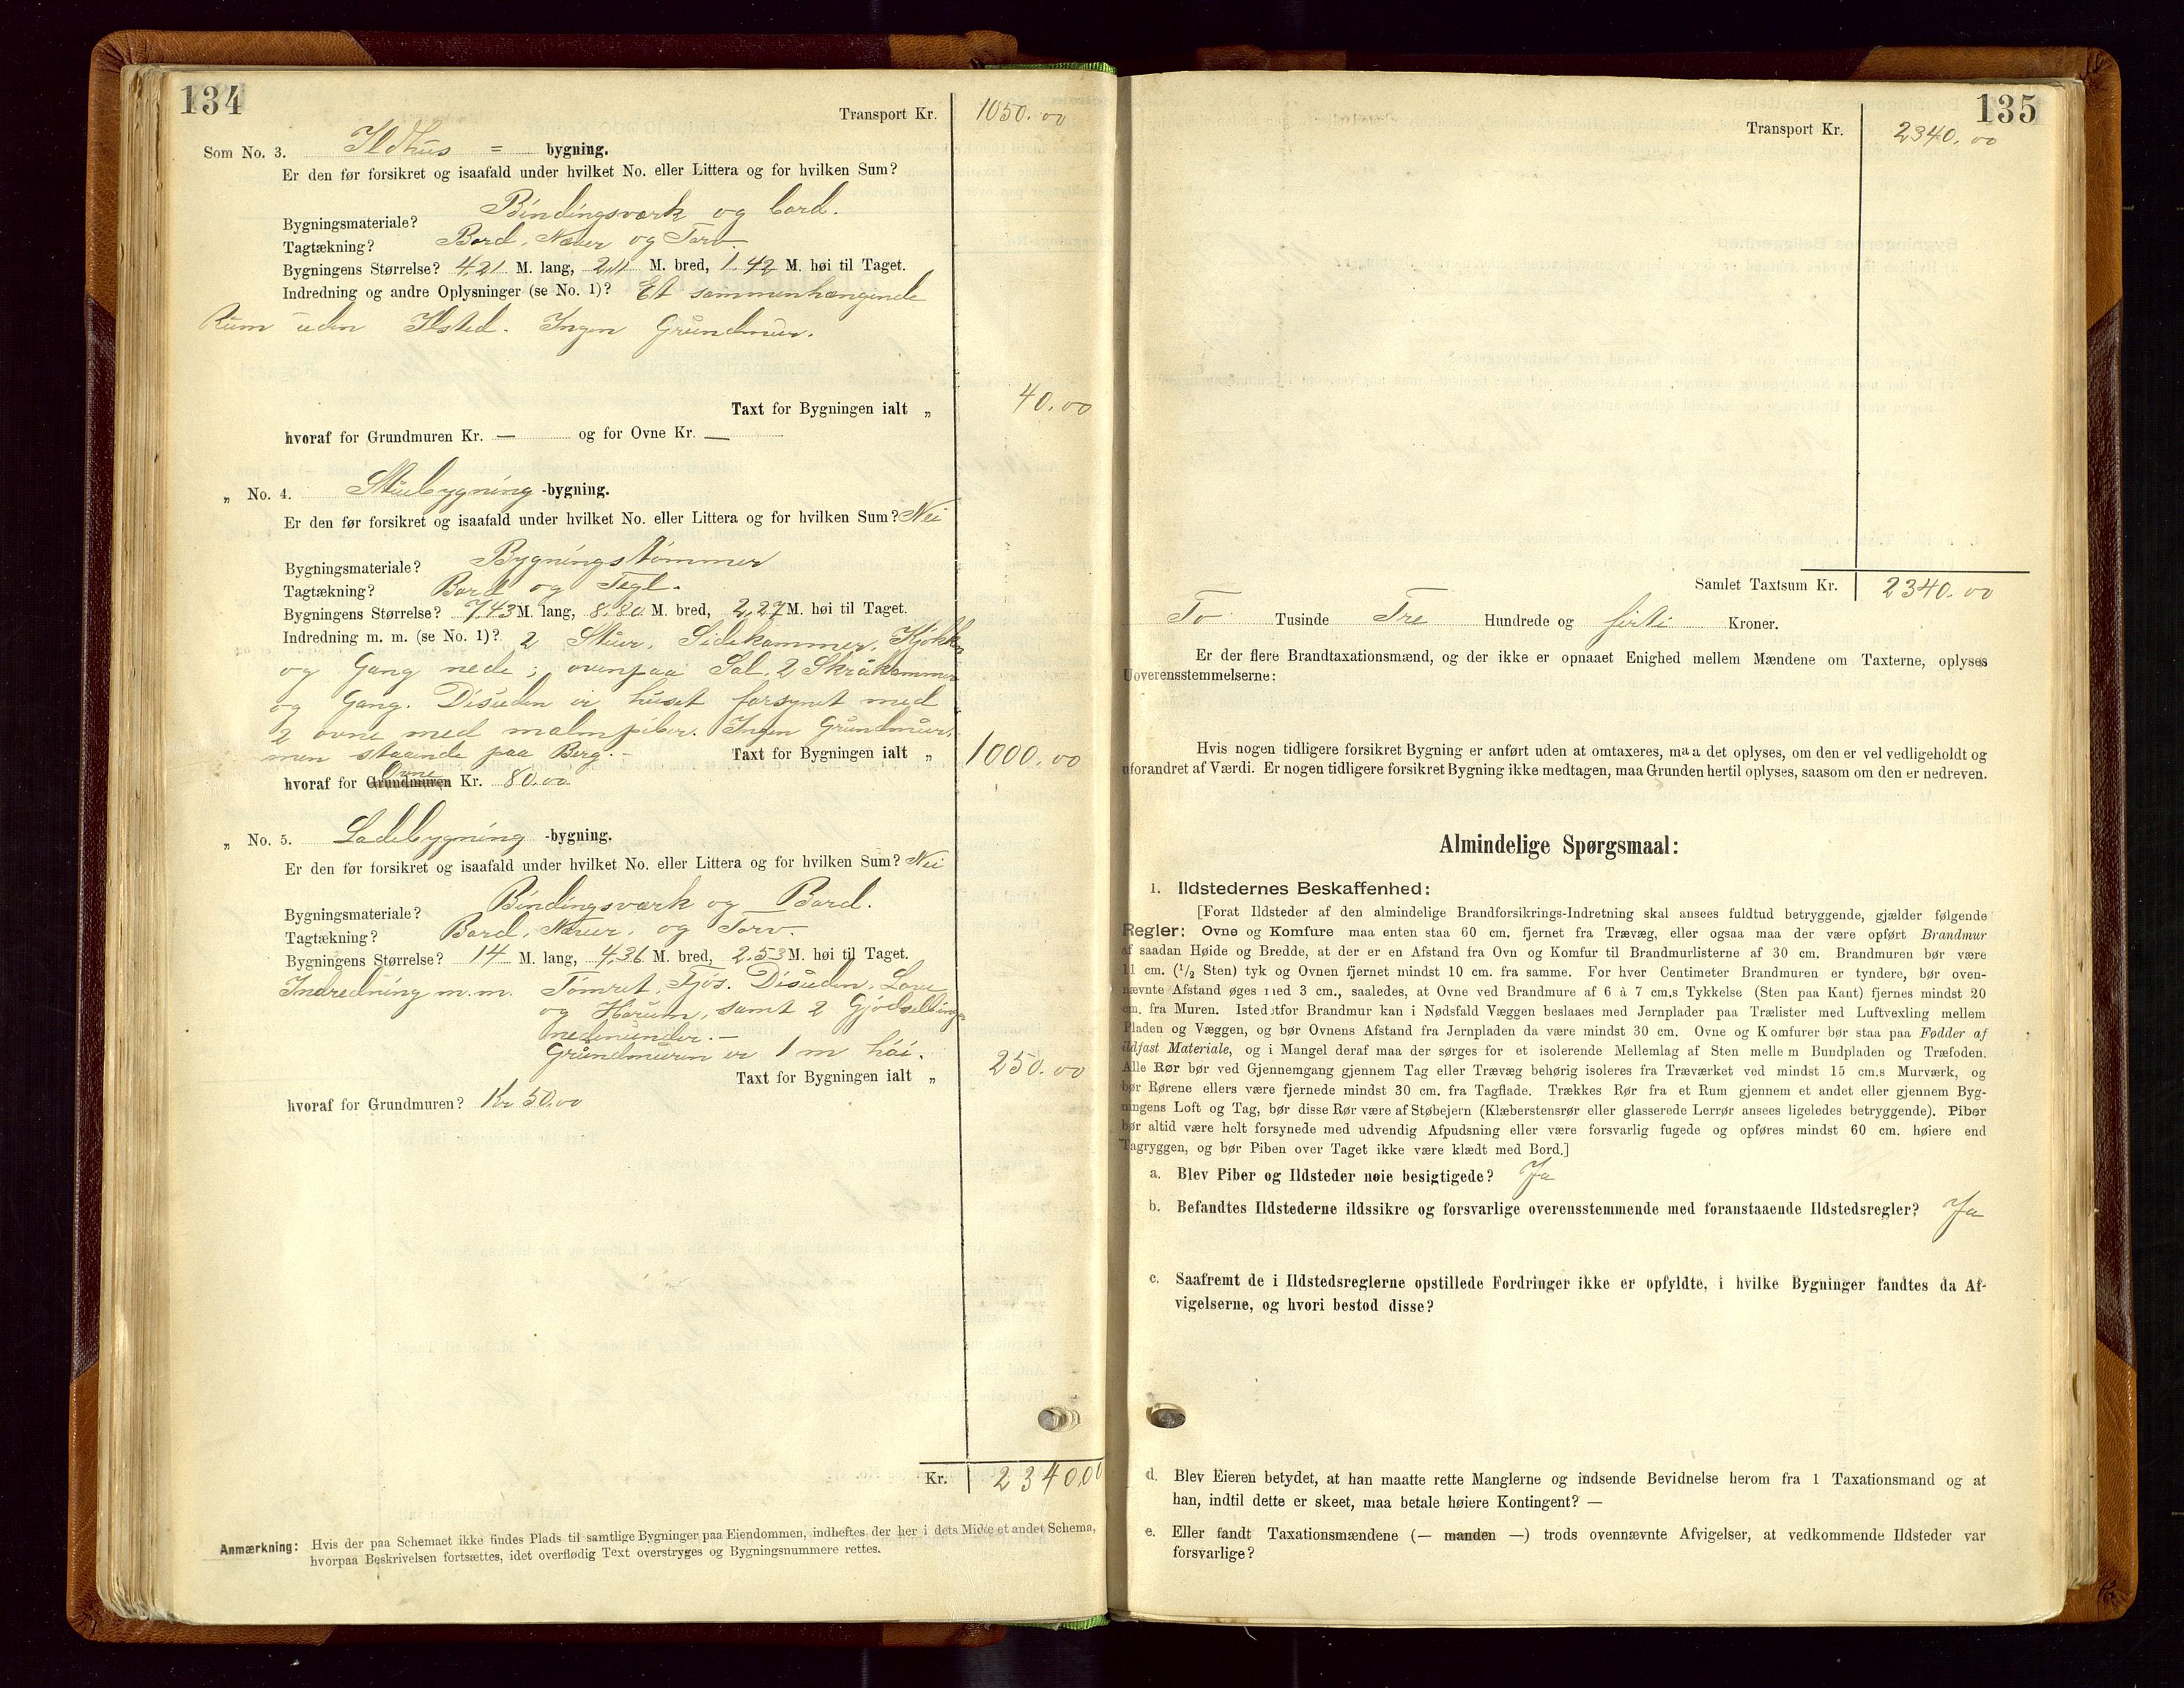 134
Transport Kr. 1050.00
Som No. 3. Ildhus = bygning.
Er den før forsikret og isaafald under hvilket No. eller Littera og for hvilken Sum?
Bygningsmateriale? Bindingsværk og bord.
Tagtækning? Bord, Næver og Torv.
Bygningens Størrelse? 4,21 M. lang, 2,11 M. bred, 1.42 M. høi til Taget.
Indredning og andre Oplysninger (se No. 1)? Et sammenhængende
Rum uden Ilsted. Ingen Grundmur.
Taxt for Bygningen ialt „ 40.00
hvoraf for Grundmuren Kr. — og for Ovne Kr. —
„ No. 4. Stuebygning -bygning.
Er den før forsikret og isaafald under hvilket No. eller Littera og for hvilken Sum? Nei
Bygningsmateriale? Bygningstømmer
Tagtækning? Bord og Tegl.
Bygningens Størrelse? 7,43 M. lang, 8.80 M. bred, 2,27 M. høi til Taget.
Indredning m. m. (se No. 1)? 2 Stuer, Sidekammer, Kjøkken
og Gang nede; ovenpaa Sal, 2 Skråkammer
og Gang. Disuden er huset forsynet med
2 ovne med malmpiber. Ingen Grundmur,
men staaende paa Berg. –
Taxt for Bygningen ialt „ 1000.00
hvoraf for Grundmuren Ovne Kr. 80.00
„ No. 5. Ladebygning -bygning.
Er den før forsikret og isaafald under hvilket No. eller Littera og for hvilken Sum? Nei
Bygningsmateriale? Bindingsværk og Bord.
Tagtækning? Bord, Næver, og Torv.
Bygningens Størrelse? 14 M. lang, 4,36 M. bred, 2.53 M. høi til Taget.
Indredning m.m. Tømret Fjøs. Disuden, Lave
og Hørum, samt 2 Gjødselbinge
nedenunder. –
Grundmuren er 1 m høi.
Taxt for Bygningen ialt „ 250.00
hvoraf for Grundmuren? Kr 50.00
Kr. 2340.00
Anmærkning: Hvis der paa Schemaet ikke findes Plads til samtlige Bygninger paa Eiendommen, indheftes der her i dets Midte et andet Schema,
hvorpaa Beskrivelsen fortsættes, idet overflødig Text overstryges og Bygningsnummere rettes.
135
Transport Kr. 2340.00
Samlet Taxtsum Kr. 2340.00
To Tusinde Tre Hundrede og firti Kroner.
Er der flere Brandtaxationsmænd, og der ikke er opnaaet Enighed mellem Mændene om Taxterne, oplyses
Uoverensstemmelserne:
Hvis nogen tidligere forsikret Bygning er anført uden at omtaxeres, maa det oplyses, om den er vel vedligeholdt og
uforandret af Værdi. Er nogen tidligere forsikret Bygning ikke medtagen, maa Grunden hertil oplyses, saasom om den er nedreven.
Almindelige Spørgsmaal:
1. Ildstedernes Beskaffenhed:
[Forat Ildsteder af den almindelige Brandforsikrings-Indretning skal ansees fuldtud betryggende, gjælder følgende
Regler: Ovne og Komfure maa enten staa 60 cm. fjernet fra Trævæg, eller ogsaa maa der være opført Brandmur
af saadan Høide og Bredde, at der er en Afstand fra Ovn og Komfur til Brandmurlisterne af 30 cm. Brandmuren bør være
11 cm. (1/2 Sten) tyk og Ovnen fjernet mindst 10 cm. fra samme. For hver Centimeter Brandmuren er tyndere, bør oven-
nævnte Afstand øges med 3 cm., saaledes, at Ovne ved Brandmure af 6 à 7 cm.s Tykkelse (Sten paa Kant) fjernes mindst 20
cm. fra Muren. Istedetfor Brandmur kan i Nødsfald Væggen beslaaes med Jernplader paa Trælister med Luftvexling mellem
Pladen og Væggen, og bør Ovnens Afstand fra Jernpladen da være mindst 30 cm. Ovne og Komfurer bør staa paa Fødder af
ildfast Materiale, og i Mangel deraf maa der sørges for et isolerende Mellemlag af Sten mellem Bundpladen og Træfoden.
Alle Rør bør ved Gjennemgang gjennem Tag eller Trævæg behørig isoleres fra Træværket ved mindst 15 cm.s Murværk, og
bør Rørene ellers være fjernede mindst 30 cm. fra Tagflade. Trækkes Rør fra et Rum gjennem et andet eller gjennem Byg-
ningens Loft og Tag, bør disse Rør være af Støbejern (Klæberstensrør eller glasserede Lerrør ansees ligeledes betryggende). Piber
bør altid være helt forsynede med udvendig Afpudsning eller være forsvarlig fugede og opføres mindst 60 cm. høiere end
Tagryggen, og bør Piben over Taget ikke være klædt med Bord.]
a. Blev Piber og Ildsteder nøie besigtigede? Ja
b. Befandtes Ildstederne ildssikre og forsvarlige overensstemmende med foranstaaende Ildstedsregler? Ja
c. Saafremt de i Ildstedsreglerne opstillede Fordringer ikke er opfyldte, i hvilke Bygninger fandtes da Af-
vigelserne, og hvori bestod disse?
d. Blev Eieren betydet, at han maatte rette Manglerne og indsende Bevidnelse herom fra 1 Taxationsmand og at
han, indtil dette er skeet, maa betale høiere Kontingent? —
e. Eller fandt Taxationsmændene (— manden —) trods ovennævnte Afvigelser, at vedkommende Ildsteder var
forsvarlige?